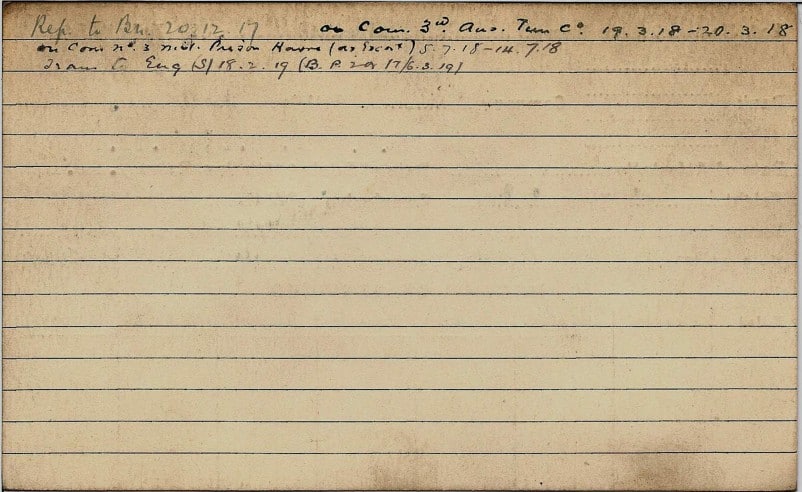 Rep. to Bn. 20.12.17 on Com. 3rd. Aus. Tun Co. 19.3.18-20.3.18
on Com no. 3 mil. Prison Havre (as Escort) 5.7.18-14.7.18
Trans to Eng (S) 18.2.19 (B. P. 209 17/6.3.19)